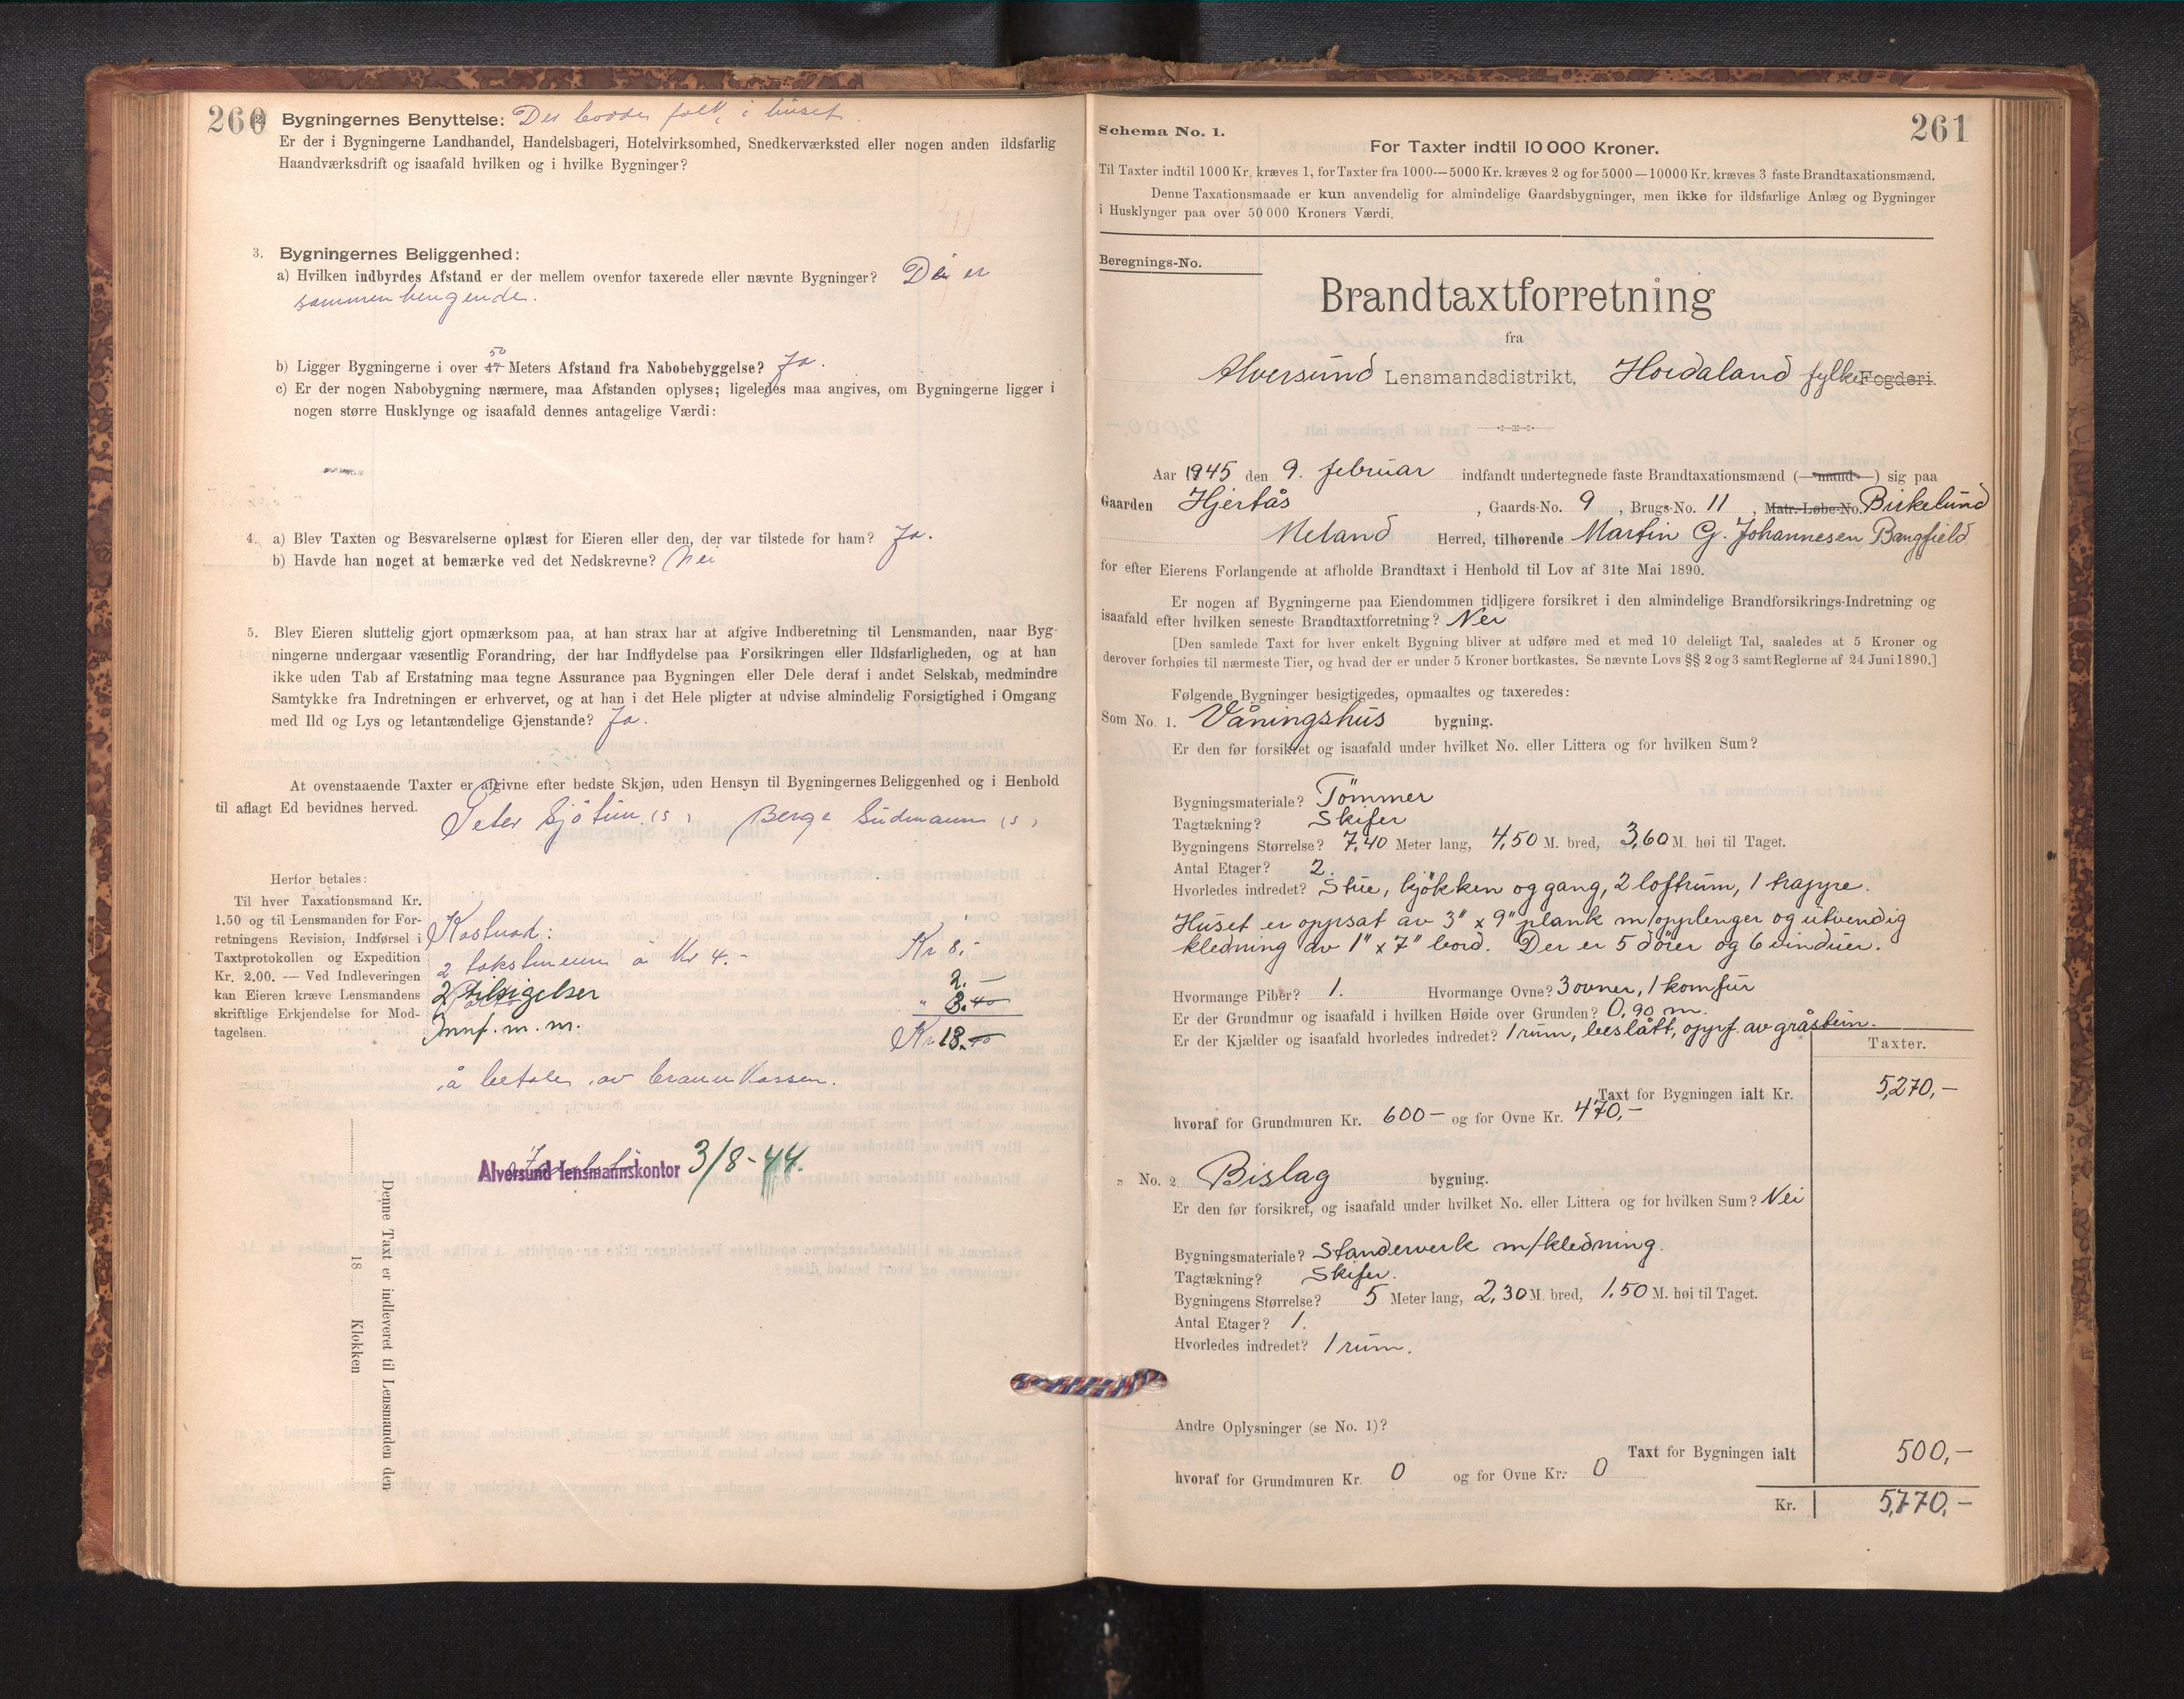 260
2. Bygningernes Benyttelse: Der bodde folk i huset.
Er der i Bygningerne Landhandel, Handelsbageri, Hotelvirksomhed, Snedkerværksted eller nogen anden ildsfarlig
Haandværksdrift og isaafald hvilken og i hvilke Bygninger?
3. Bygningernes Beliggenhed:
a) Hvilken indbyrdes Afstand er der mellem ovenfor taxerede eller nævnte Bygninger? De er
sammenhengende.
50
b) Ligger Bygningerne i over Meters Afstand fra Nabobebyggelse? Ja.
c) Er der nogen Nabobygning nærmere, maa Afstanden oplyses; ligeledes maa angives, om Bygningerne ligger i
nogen større Husklynge og isaafald dennes antagelige Værdi:
4. a) Blev Taxten og Besvarelserne oplæst for Eieren eller den, der var tilstede for ham? Ja.
b) Havde han noget at bemærke ved det Nedskrevne? Nei
5. Blev Eieren sluttelig gjort opmærksom paa, at han strax har at afgive Indberetning til Lensmanden, naar Byg-
ningerne undergaar væsentlig Forandring, der har Indflydelse paa Forsikringen eller Ildsfarligheden, og at han
ikke uden Tab af Erstatning maa tegne Assurance paa Bygningen eller Dele deraf i andet Selskab, medmindre
Samtykke fra Indretningen er erhvervet, og at han i det Hele pligter at udvise almindelig Forsigtighed i Omgang
med Ild og Lys og letantændelige Gjenstande? Ja.
At ovenstaaende Taxter er afgivne efter bedste Skjøn, uden Hensyn til Bygningernes Beliggenhed og i Henhold
til aflagt Ed bevidnes herved.
Peter Sjøtun (s) Berge Sudmann (s)
Herfor betales:
Til hver Taxationsmand Kr.
1.50 og til Lensmanden for For-
retningens Revision, Indførsel i
Taxtprotokollen og Expedition
Kr. 2.00. — Ved Indleveringen
kan Eieren kræve Lensmandens
skriftlige Erkjendelse for Mod-
tagelsen.
Kostnad:
2 takstmenn à Kr 4.- Kr 8.-
2 tilsigelser 2.-
Innf. m. m. " 3.40
Kr 13.40
å betale av brannkassen.
Alversund lensmannskontor 3/8-44.
Denne Taxt er indleveret til Lensmanden den
18 Klokken
261
Schema No. 1.
For Taxter indtil 10 000 Kroner.
Til Taxter indtil 1000 Kr. kræves 1, for Taxter fra 1000—5000 Kr. kræves 2 og for 5000—10000 Kr. kræves 3 faste Brandtaxationsmænd.
Denne Taxationsmaade er kun anvendelig for almindelige Gaardsbygninger, men ikke for ildsfarlige Anlæg og Bygninger
i Husklynger paa over 50 000 Kroners Værdi.
Beregnings-No.
Brandtaxtforretning
fra
Alversund Lensmandsdistrikt, Hordaland fylke Fogderi.
Aar 1945 den 9. februar indfandt undertegnede faste Brandtaxationsmænd (—mand—) sig paa
Gaarden Hjertås, Gaards-No. 9, Brugs-No. 11, Matr.-Løbe-No. Birkelund
Meland Herred, tilhørende Martin G. Johannesen Bangfield
for efter Eierens Forlangende at afholde Brandtaxt i Henhold til Lov af 31te Mai 1890.
Er nogen af Bygningerne paa Eiendommen tidligere forsikret i den almindelige Brandforsikrings-Indretning og
isaafald efter hvilken seneste Brandtaxtforretning? Nei
[Den samlede Taxt for hver enkelt Bygning bliver at udføre med et med 10 deleligt Tal, saaledes at 5 Kroner og
derover forhøies til nærmeste Tier, og hvad der er under 5 Kroner bortkastes. Se nævnte Lovs §§ 2 og 3 samt Reglerne af 24 Juni 1890.]
Følgende Bygninger besigtigedes, opmaaltes og taxeredes:
Som No. 1. Våningshus bygning.
Er den før forsikret og isaafald under hvilket No. eller Littera og for hvilken Sum?
Bygningsmateriale? Tömmer
Tagtækning? Skifer
Bygningens Størrelse? 7,40 Meter lang, 4,50 M. bred, 3,60 M. høi til Taget.
Antal Etager? 2.
Hvorledes indredet? Stue, kjökken og gang, 2 loftrum, 1 trappe.
Huset er oppsat av 3" x 9" plank m/opplenger og utvendig
kledning av 1" x 7" bord. Der er 5 dörer og 6 vinduer.
Hvormange Piber? 1. Hvormange Ovne? 3 ovner, 1 komfur
Er der Grundmur og isaafald i hvilken Høide over Grunden? 0,90 m.
Er der Kjælder og isaafald hvorledes indredet? 1 rum, beslått, oppf. av gråstein.
Taxter.
Taxt for Bygningen ialt Kr. 5,270,-
hvoraf for Grundmuren Kr. 600- og for Ovne Kr. 470,-
" No. 2 Bislag bygning.
Er den før forsikret, og isaafald under hvilket No. eller Littera og for hvilken Sum? Nei
Bygningsmateriale? Standerverk m/kledning.
Tagtækning? Skifer.
Bygningens Størrelse? 5 Meter lang, 2,30 M. bred, 1,50 M. høi til Taget.
Antal Etager? 1.
Hvorledes indredet? 1 rum.
Andre Oplysninger (se No. 1)?
Taxt for Bygningen ialt 500,-
hvoraf for Grundmuren Kr. 0 og for Ovne Kr. 0
Kr. 5,770,-